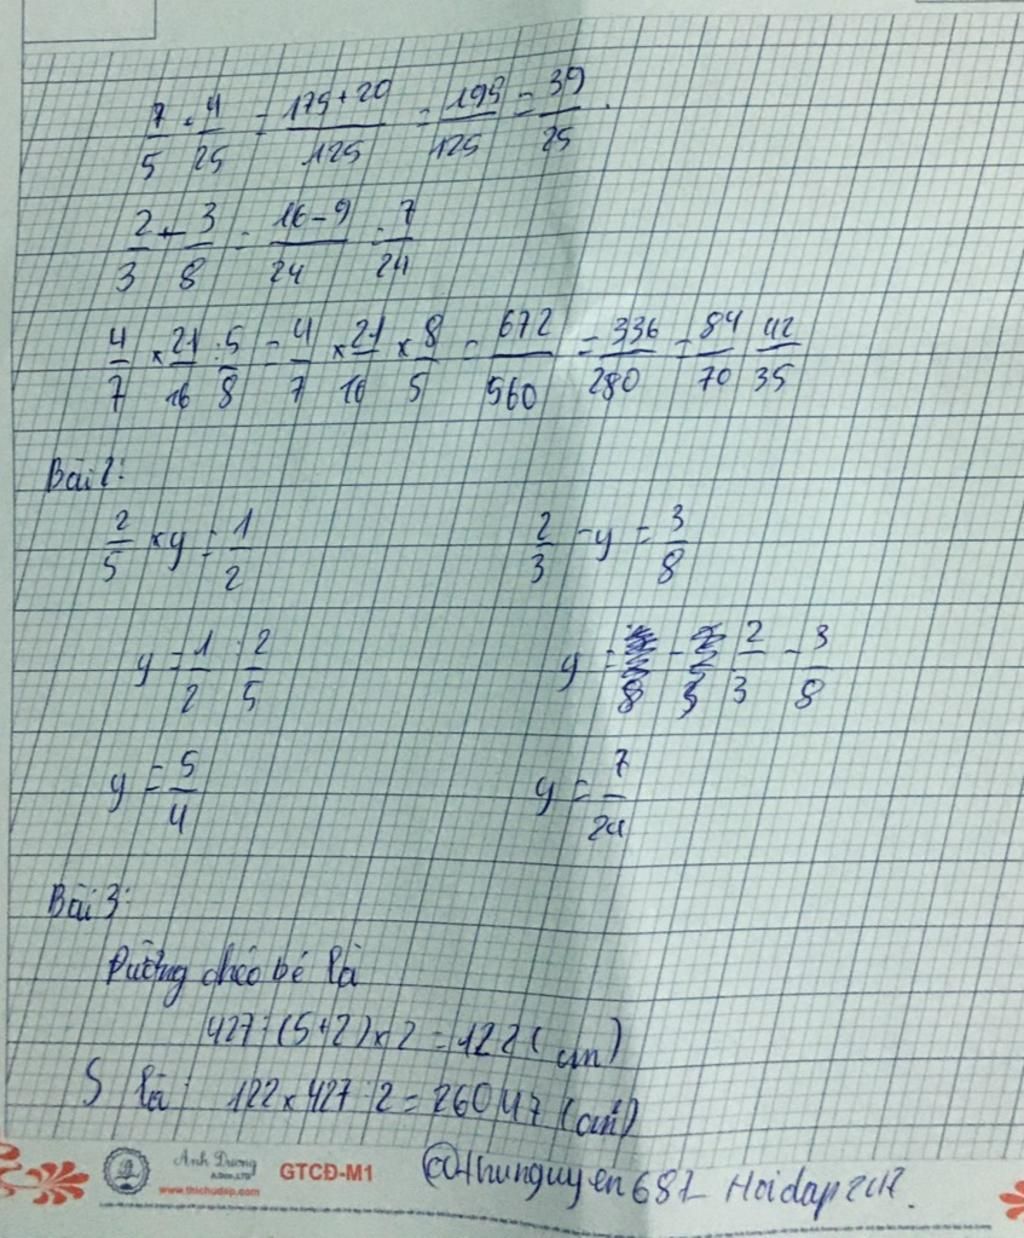 7/5 + 4/25 = 175+20/125 = 195/125 = 39/25.
2/3 - 3/8 = 16-9/24 = 7/24
4/7 × 21/16 : 5/8 = 4/7 × 21/16 × 8/5 = 672/560 = 336/280 = 84/70 42/35
Bài 2:
2/5 × y = 1/2    2/3 - y = 3/8
y = 1/2 : 2/5    y = 2/3 - 3/8
y = 5/4    y = 7/24
Bài 3:
Đường chéo bé là
427 : (5+2) × 2 = 122 (cm)
S là: 122 × 427 : 2 = 26047 (cm²)
Anh Dương
GTCĐ-M1
www.thichudep.com